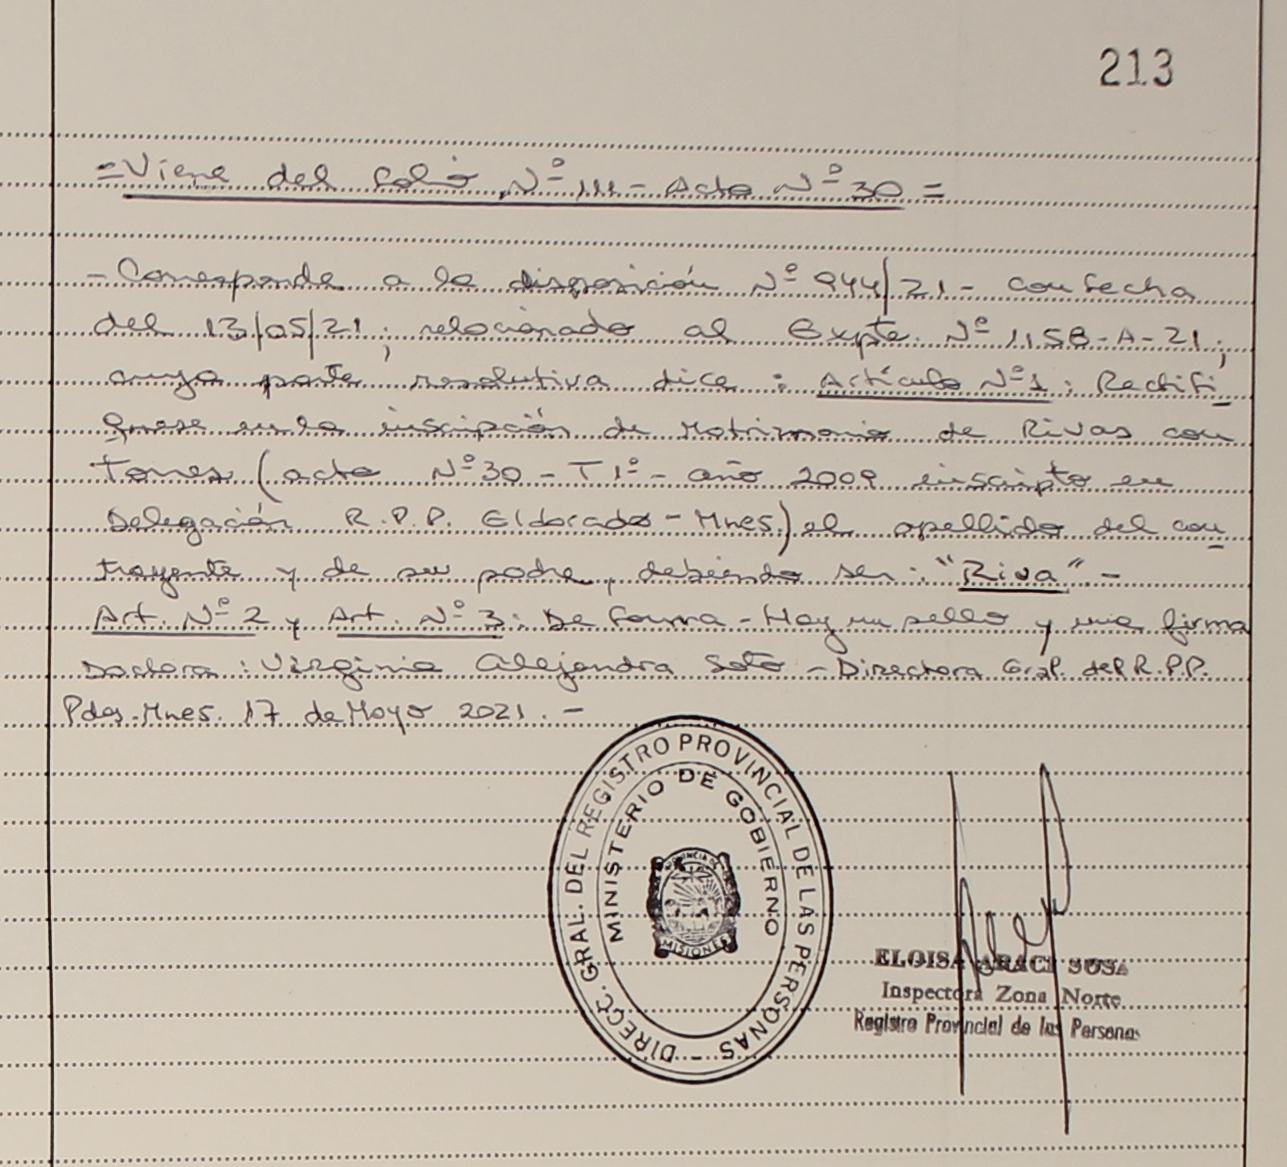 213
=Viene del Folio Nº 111- Acta Nº 30=
- Corresponde a la disposición Nº 944/21- con fecha
del 13/05/21; relacionado al Expte. Nº 1158-A-21,
cuya parte resolutiva dice: Artículo Nº1: Rectifí_
quese en la inscripción de Matrimonio de Rivas con
Torres (acta Nº30 - T1º- año 2009 inscripto en
Delegación R.P.P. Eldorado - Mnes.) el apellido del con_
trayente y de su padre, debiendo ser: "Riva".-
Art. Nº 2 y Art. Nº 3: De forma - Hay un sello y una firma
Doctora: Virginia Alejandra Soto - Directora Gral. del R.P.P.
Pdas. Mnes. 17 de Mayo 2021.-
DIRECC. GRAL. DEL REGISTRO PROVINCIAL DE LAS PERSONAS -
MINISTERIO DE GOBIERNO
PROVINCIA DE
MISIONES
ELOISA ARACI SOSA
Inspectora Zona Norte
Registro Provincial de las Personas